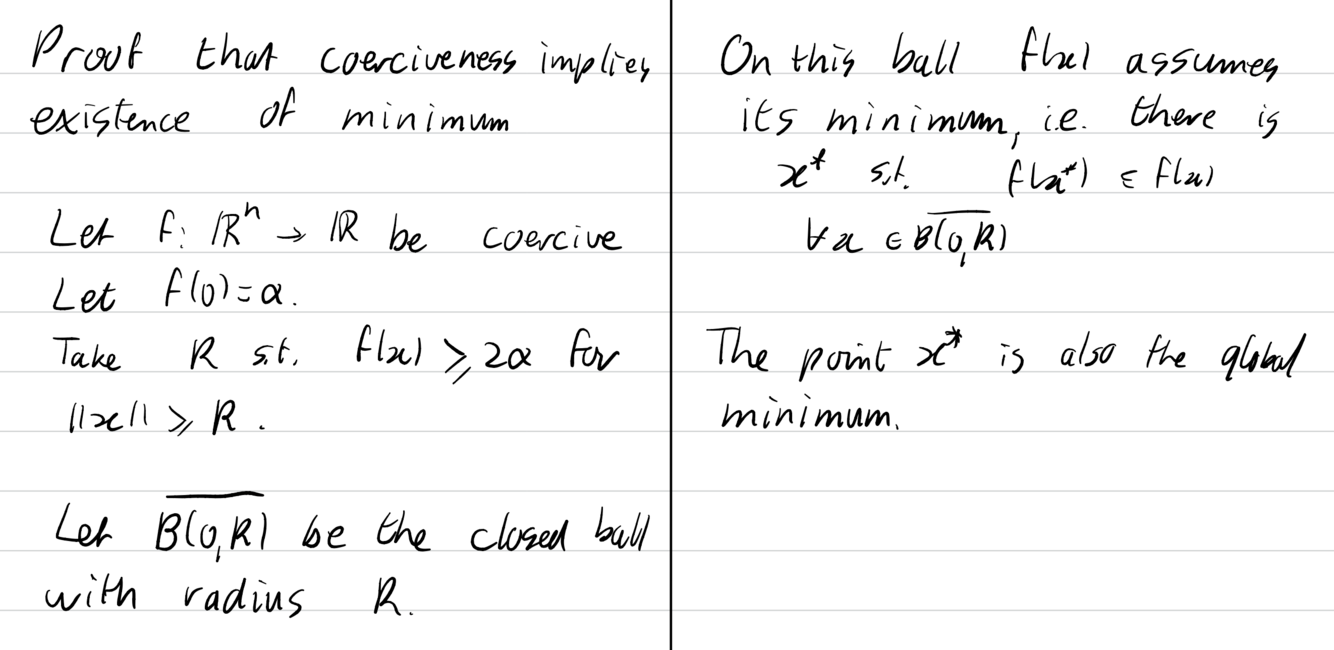 Proof that coerciveness implies
existence of minimum
Let f: ℝⁿ → ℝ be coercive
Let f(0) = α.
Take R s.t. f(x) ⩾ 2α for
||x|| ⩾ R.
Let \overline{B(0,R)} be the closed ball
with radius R.
On this ball f(x) assumes
its minimum, i.e. there is
x* s.t. f(x*) ≤ f(x)
∀x ∈ \overline{B(0,R)}
The point x* is also the global
minimum.